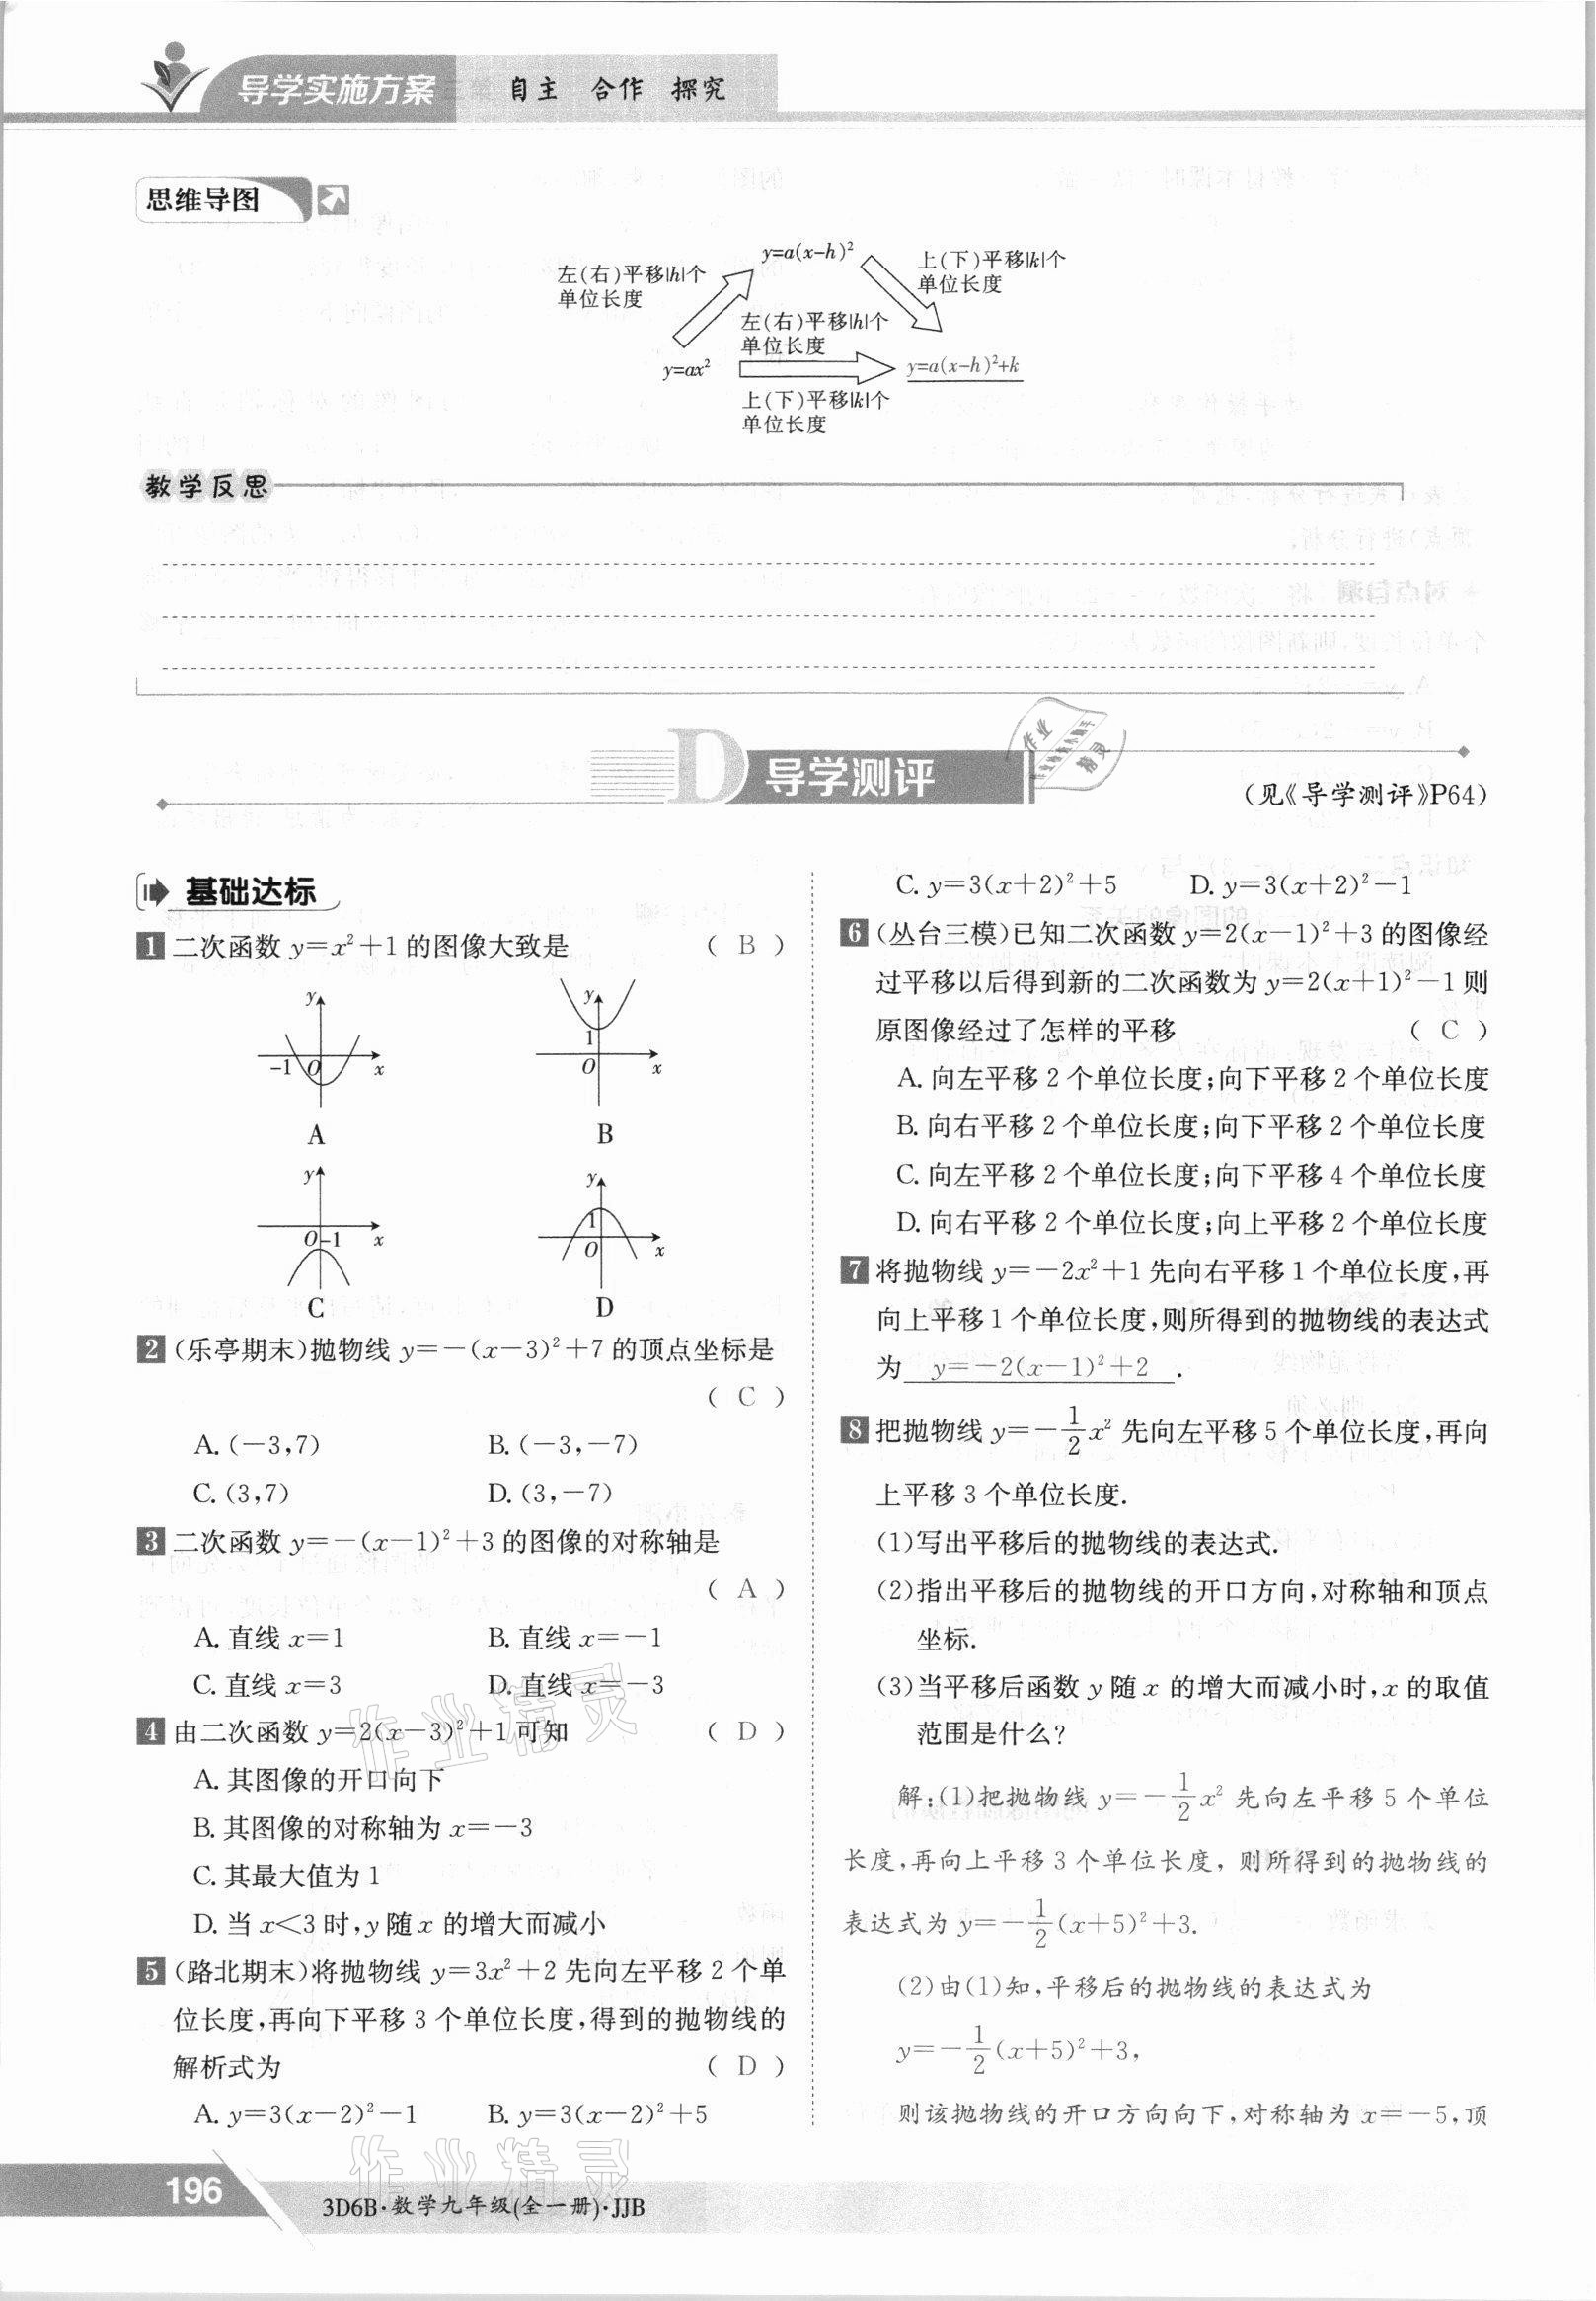 导学实施方案 自主 合作 探究
思维导图
y=a(x-h)²
左(右)平移|h|个
单位长度
上(下)平移|k|个
单位长度
左(右)平移|h|个
单位长度
y=ax²
y=a(x-h)²+k
上(下)平移|k|个
单位长度
教学反思
D 导学测评
作业精灵
(见《导学测评》P64)
基础达标
1 二次函数 y=x²+1 的图像大致是 ( B )
y
-1 O x
A
y
1
O x
B
y
O -1 x
C
y
1
O x
D
2 (乐亭期末)抛物线 y=-(x-3)²+7 的顶点坐标是
( C )
A. (-3,7) B. (-3,-7)
C. (3,7) D. (3,-7)
3 二次函数 y=-(x-1)²+3 的图像的对称轴是
( A )
A. 直线 x=1 B. 直线 x=-1
C. 直线 x=3 D. 直线 x=-3
4 由二次函数 y=2(x-3)²+1 可知 ( D )
A. 其图像的开口向下
B. 其图像的对称轴为 x=-3
C. 其最大值为 1
D. 当 x<3 时,y 随 x 的增大而减小
5 (路北期末)将抛物线 y=3x²+2 先向左平移 2 个单
位长度,再向下平移 3 个单位长度,得到的抛物线的
解析式为 ( D )
A. y=3(x-2)²-1 B. y=3(x-2)²+5
C. y=3(x+2)²+5 D. y=3(x+2)²-1
6 (丛台三模)已知二次函数 y=2(x-1)²+3 的图像经
过平移以后得到新的二次函数为 y=2(x+1)²-1 则
原图像经过了怎样的平移 ( C )
A. 向左平移 2 个单位长度;向下平移 2 个单位长度
B. 向右平移 2 个单位长度;向下平移 2 个单位长度
C. 向左平移 2 个单位长度;向下平移 4 个单位长度
D. 向右平移 2 个单位长度;向上平移 2 个单位长度
7 将抛物线 y=-2x²+1 先向右平移 1 个单位长度,再
向上平移 1 个单位长度,则所得到的抛物线的表达式
为 y=-2(x-1)²+2 .
8 把抛物线 y=-1/2 x² 先向左平移 5 个单位长度,再向
上平移 3 个单位长度.
(1)写出平移后的抛物线的表达式.
(2)指出平移后的抛物线的开口方向,对称轴和顶点
坐标.
(3)当平移后函数 y 随 x 的增大而减小时,x 的取值
范围是什么?
解:(1)把抛物线 y=-1/2 x² 先向左平移 5 个单位
长度,再向上平移 3 个单位长度,则所得到的抛物线的
表达式为 y=-1/2(x+5)²+3.
(2)由(1)知,平移后的抛物线的表达式为
y=-1/2(x+5)²+3,
则该抛物线的开口方向向下,对称轴为 x=-5,顶
作业精灵
作业精灵
196 3D6B·数学九年级(全一册)·JJB